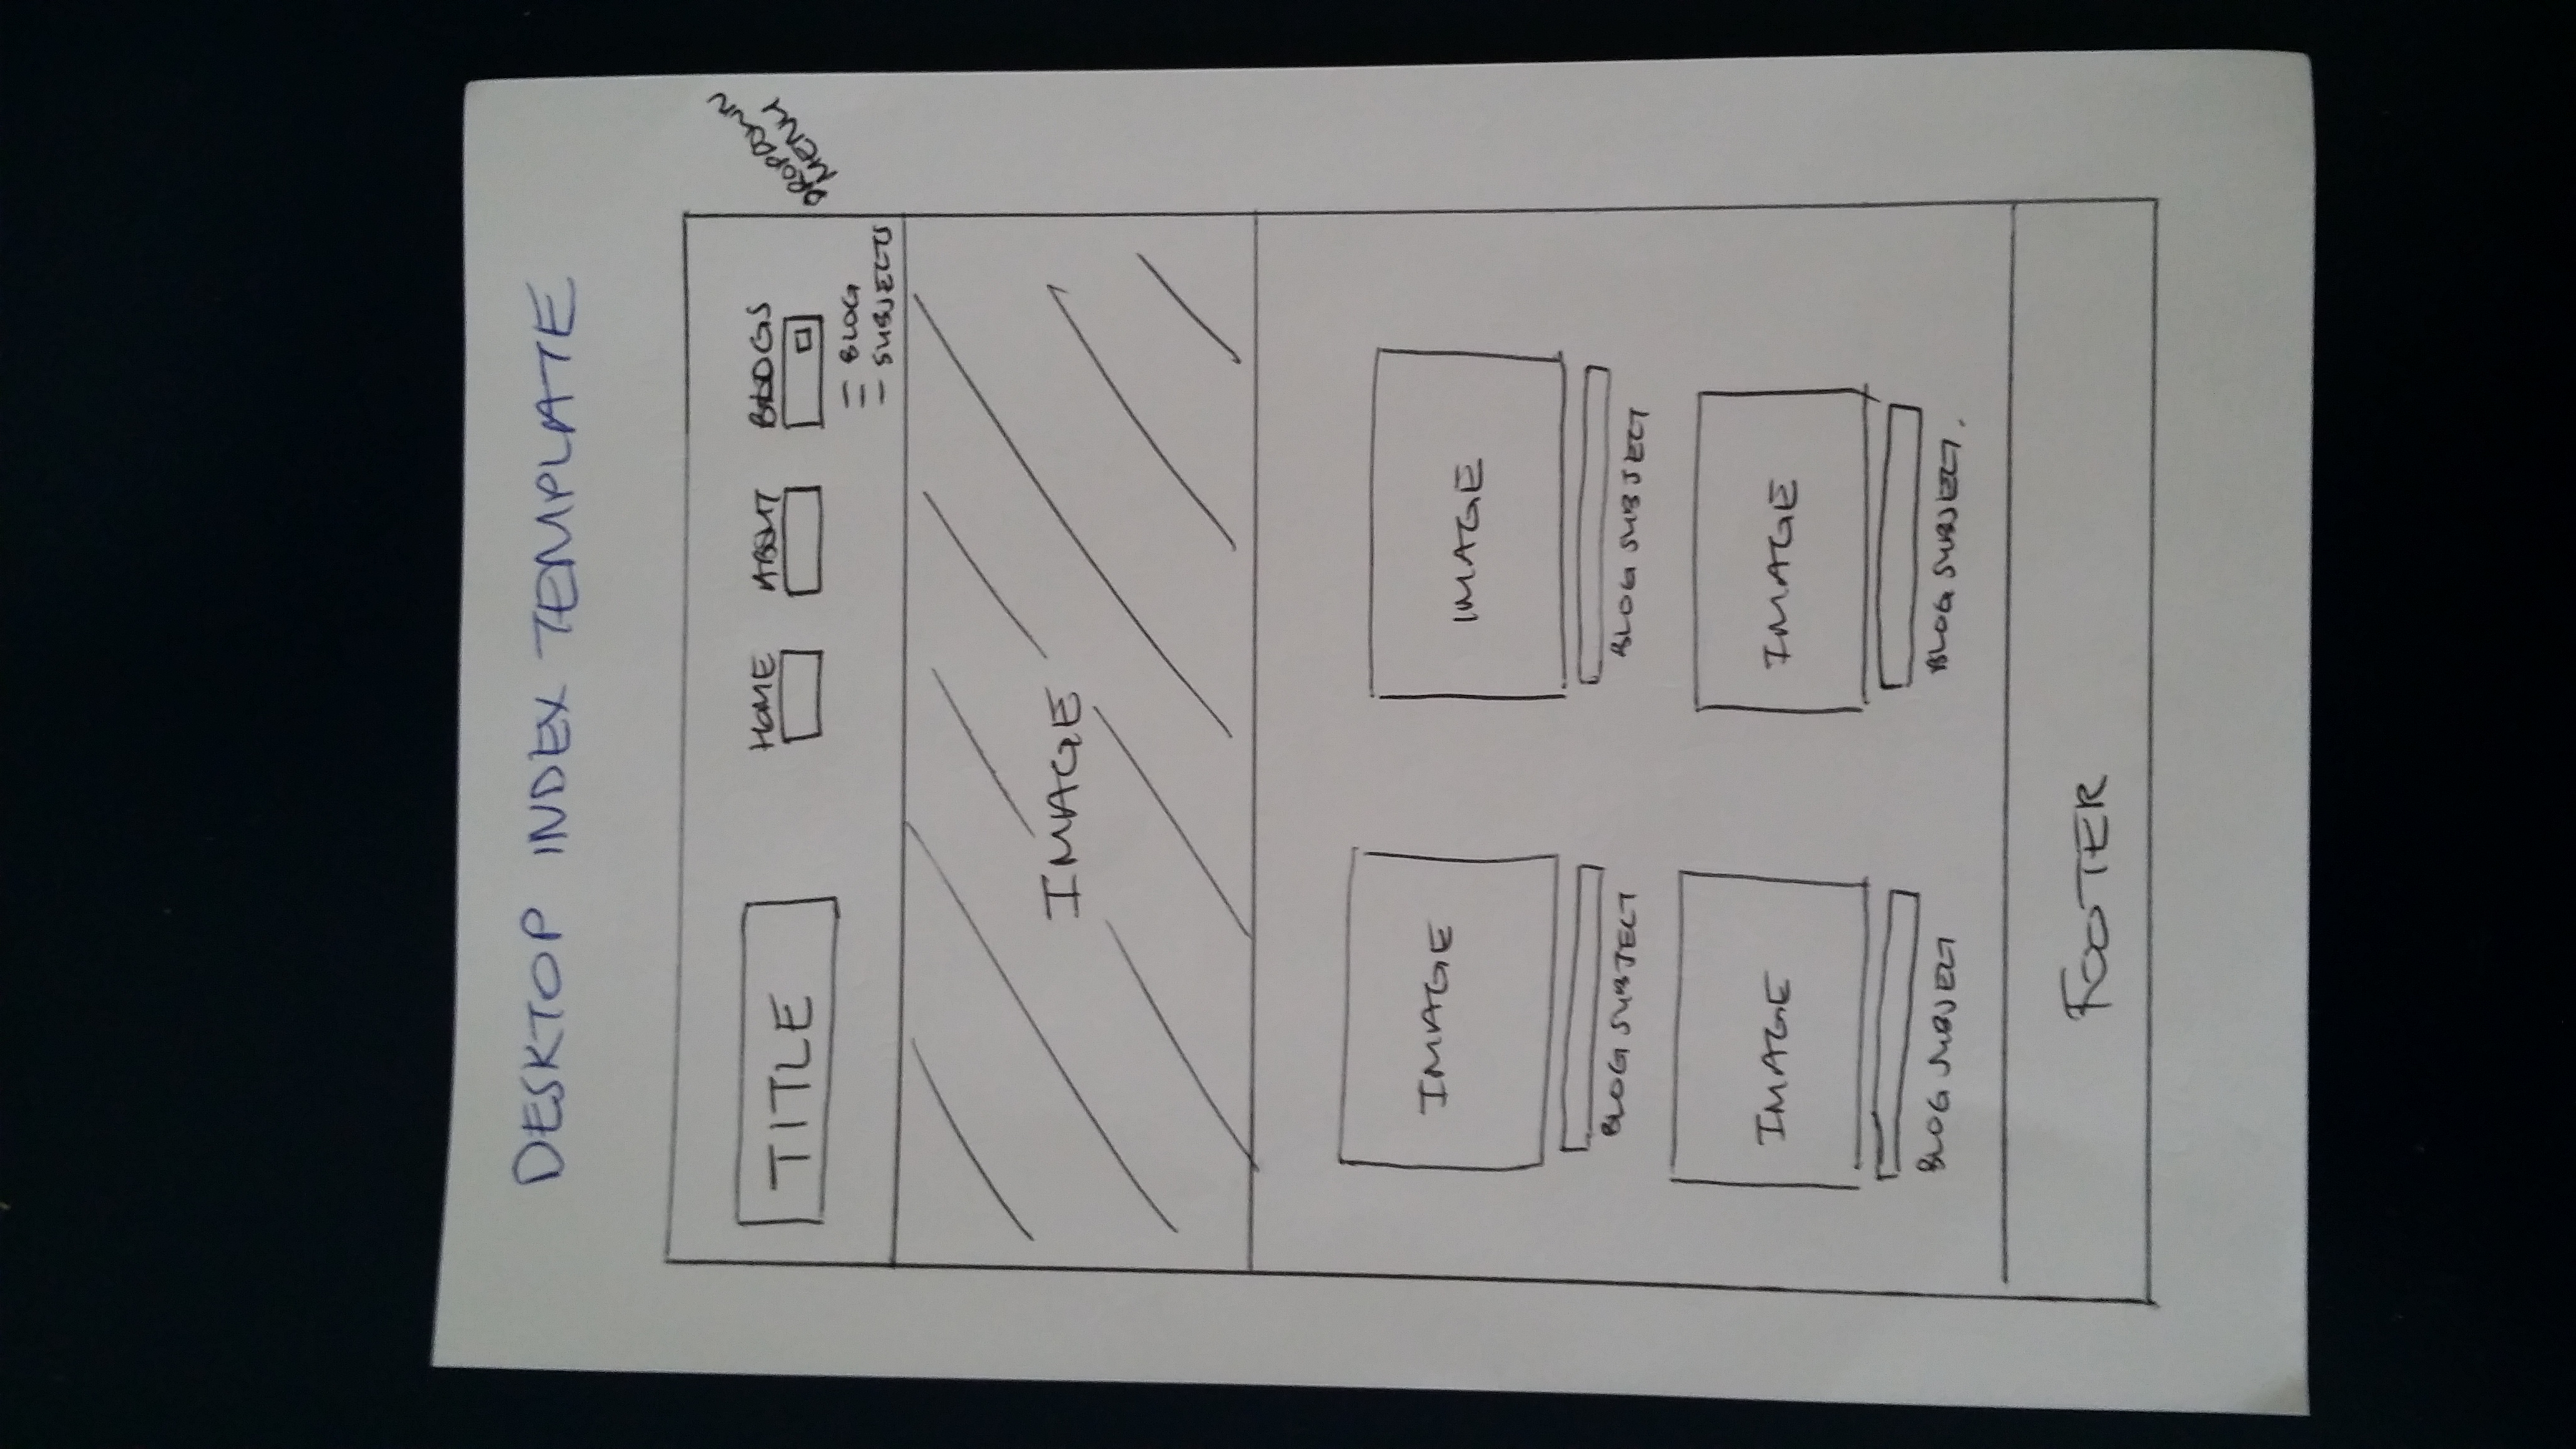 DESKTOP INDEX TEMPLATE
TITLE
HOME ABOUT BLOGS
DROPDOWN
MENU
BLOG
SUBJECTS
IMAGE
IMAGE IMAGE
BLOG SUBJECT BLOG SUBJECT
IMAGE IMAGE
BLOG SUBJECT BLOG SUBJECT.
FOOTER